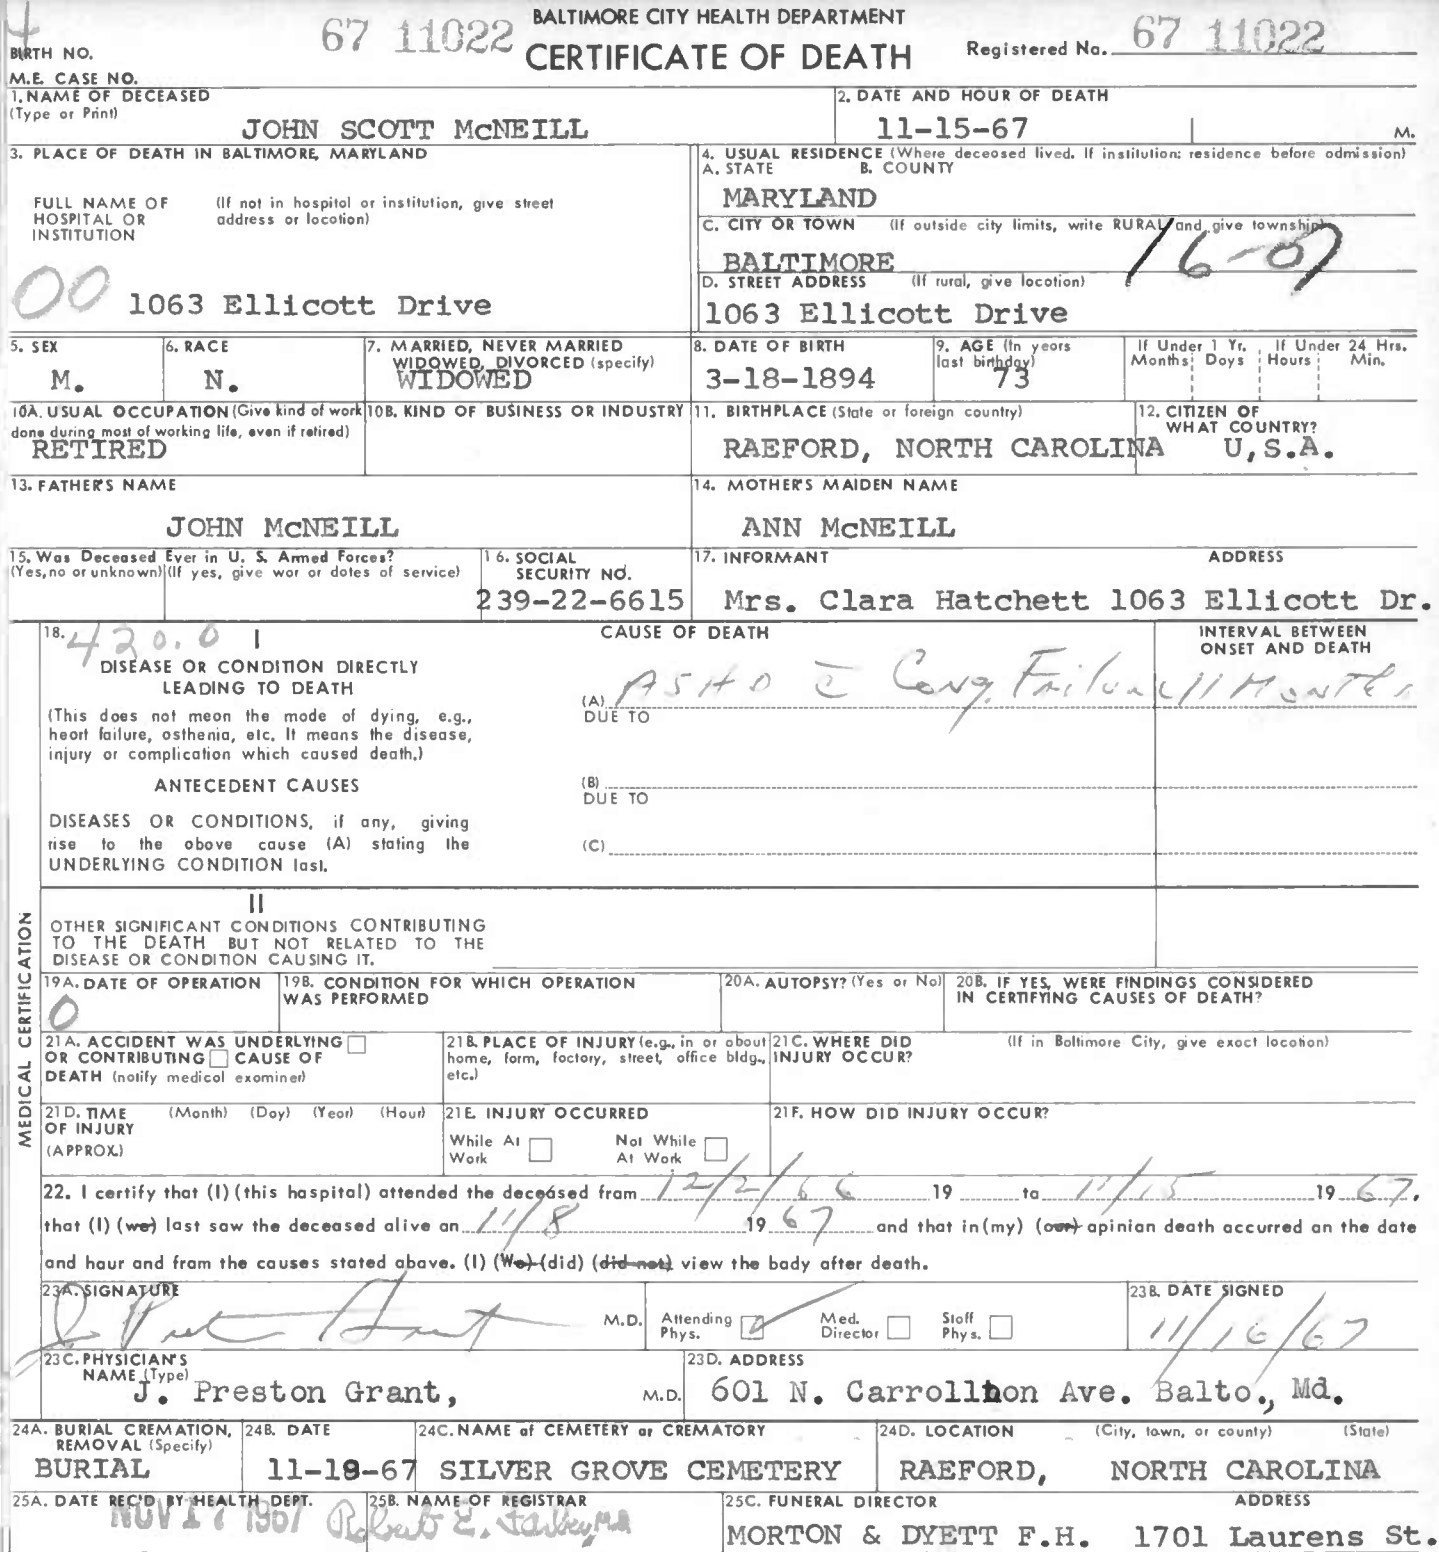 4
BIRTH NO.
67 11022
BALTIMORE CITY HEALTH DEPARTMENT
CERTIFICATE OF DEATH
Registered No. 67 11022
M.E. CASE NO.
1. NAME OF DECEASED
(Type or Print)
JOHN SCOTT McNEILL
2. DATE AND HOUR OF DEATH
11-15-67 M.
3. PLACE OF DEATH IN BALTIMORE, MARYLAND
FULL NAME OF HOSPITAL OR INSTITUTION
(If not in hospital or institution, give street address or location)
00 1063 Ellicott Drive
4. USUAL RESIDENCE (Where deceased lived. If institution: residence before admission)
A. STATE B. COUNTY
MARYLAND
C. CITY OR TOWN (If outside city limits, write RURAL and give township)
BALTIMORE 16-07
D. STREET ADDRESS (If rural, give location)
1063 Ellicott Drive
5. SEX
M.
6. RACE
N.
7. MARRIED, NEVER MARRIED
WIDOWED, DIVORCED (specify)
WIDOWED
8. DATE OF BIRTH
3-18-1894
9. AGE (In years last birthday)
73
If Under 1 Yr. If Under 24 Hrs.
Months Days Hours Min.
10A. USUAL OCCUPATION (Give kind of work done during most of working life, even if retired)
RETIRED
10B. KIND OF BUSINESS OR INDUSTRY
11. BIRTHPLACE (State or foreign country)
RAEFORD, NORTH CAROLINA
12. CITIZEN OF WHAT COUNTRY?
U,S.A.
13. FATHER'S NAME
JOHN McNEILL
14. MOTHER'S MAIDEN NAME
ANN McNEILL
15. Was Deceased Ever in U. S. Armed Forces?
(Yes, no or unknown) (If yes, give war or dates of service)
16. SOCIAL SECURITY NO.
239-22-6615
17. INFORMANT ADDRESS
Mrs. Clara Hatchett 1063 Ellicott Dr.
18. 420.0 I
DISEASE OR CONDITION DIRECTLY
LEADING TO DEATH
(This does not mean the mode of dying, e.g.,
heart failure, asthenia, etc. It means the disease,
injury or complication which caused death.)
ANTECEDENT CAUSES
DISEASES OR CONDITIONS, if any, giving
rise to the above cause (A) stating the
UNDERLYING CONDITION last.
CAUSE OF DEATH
INTERVAL BETWEEN ONSET AND DEATH
(A) ASHD c̄ Cong. Failure 11 Months
DUE TO
(B)
DUE TO
(C)
II
OTHER SIGNIFICANT CONDITIONS CONTRIBUTING
TO THE DEATH BUT NOT RELATED TO THE
DISEASE OR CONDITION CAUSING IT.
MEDICAL CERTIFICATION
19A. DATE OF OPERATION
0
19B. CONDITION FOR WHICH OPERATION WAS PERFORMED
20A. AUTOPSY? (Yes or No)
20B. IF YES, WERE FINDINGS CONSIDERED IN CERTIFYING CAUSES OF DEATH?
21A. ACCIDENT WAS UNDERLYING
OR CONTRIBUTING CAUSE OF
DEATH (notify medical examiner)
21B. PLACE OF INJURY (e.g., in or about home, farm, factory, street, office bldg., etc.)
21C. WHERE DID INJURY OCCUR?
(If in Baltimore City, give exact location)
21D. TIME OF INJURY (APPROX.)
(Month) (Day) (Year) (Hour)
21E. INJURY OCCURRED
While At Work Not While At Work
21F. HOW DID INJURY OCCUR?
22. I certify that (I) (this hospital) attended the deceased from 12/2/66 19 to 11/15 19 67,
that (I) (we) last saw the deceased alive on 11/8 19 67 and that in (my) (our) opinion death occurred on the date
and hour and from the causes stated above. (I) (We) (did) (did not) view the body after death.
23A. SIGNATURE
J. Preston Grant M.D.
Attending Phys. Med. Director Staff Phys.
23B. DATE SIGNED
11/16/67
23C. PHYSICIAN'S NAME (Type)
J. Preston Grant, M.D.
23D. ADDRESS
601 N. Carrollhon Ave. Balto., Md.
24A. BURIAL CREMATION, REMOVAL (Specify)
BURIAL
24B. DATE
11-18-67
24C. NAME of CEMETERY or CREMATORY
SILVER GROVE CEMETERY
24D. LOCATION (City, town, or county) (State)
RAEFORD, NORTH CAROLINA
25A. DATE REC'D BY HEALTH DEPT.
NOV 17 1967
25B. NAME OF REGISTRAR
Robert E. Farber, MD
25C. FUNERAL DIRECTOR ADDRESS
MORTON & DYETT F.H. 1701 Laurens St.